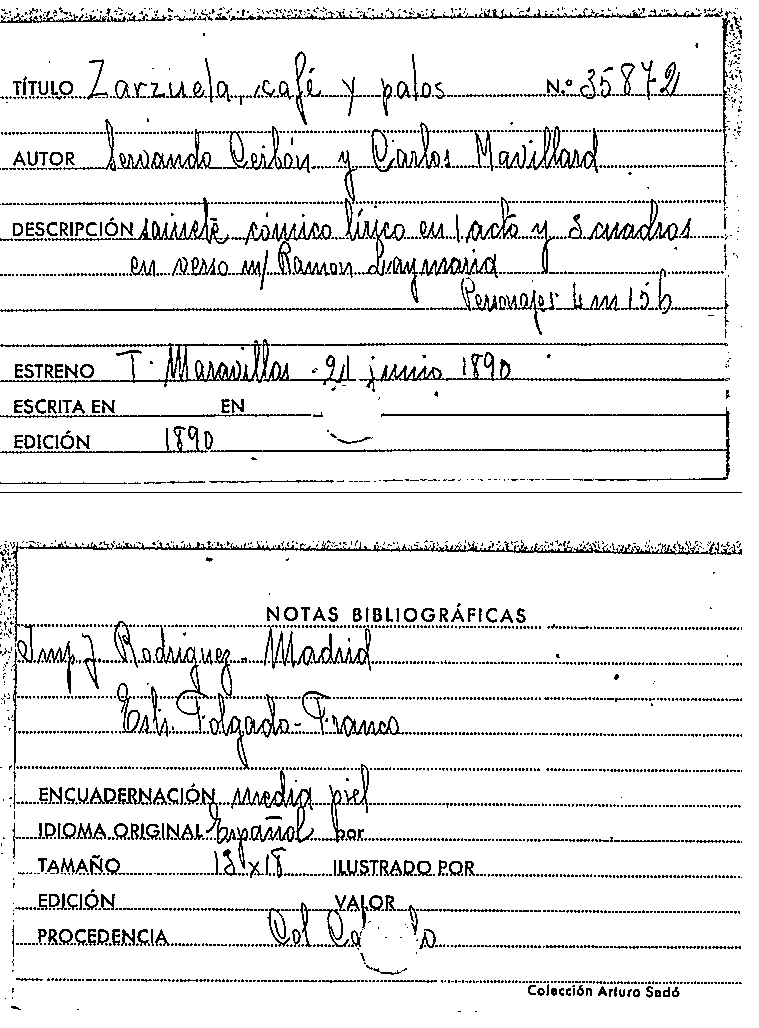 TÍTULO Zarzuela, café y palos N.º 35872
AUTOR Servando Cerbón y Carlos Mavillard
DESCRIPCIÓN sainete cómico lírico en 1 acto y 3 cuadros
en verso m/ Ramon Laymaria
Personajes 4 m 15 h
ESTRENO T. Maravillas - 21 junio 1890
ESCRITA EN EN
EDICIÓN 1890
NOTAS BIBLIOGRÁFICAS
Imp J Rodriguez - Madrid
Estr. Folgado - Franco
ENCUADERNACIÓN media piel
IDIOMA ORIGINAL Español por
TAMAÑO ILUSTRADO POR
EDICIÓN VALOR
PROCEDENCIA Col
Colección Arturo Sedó